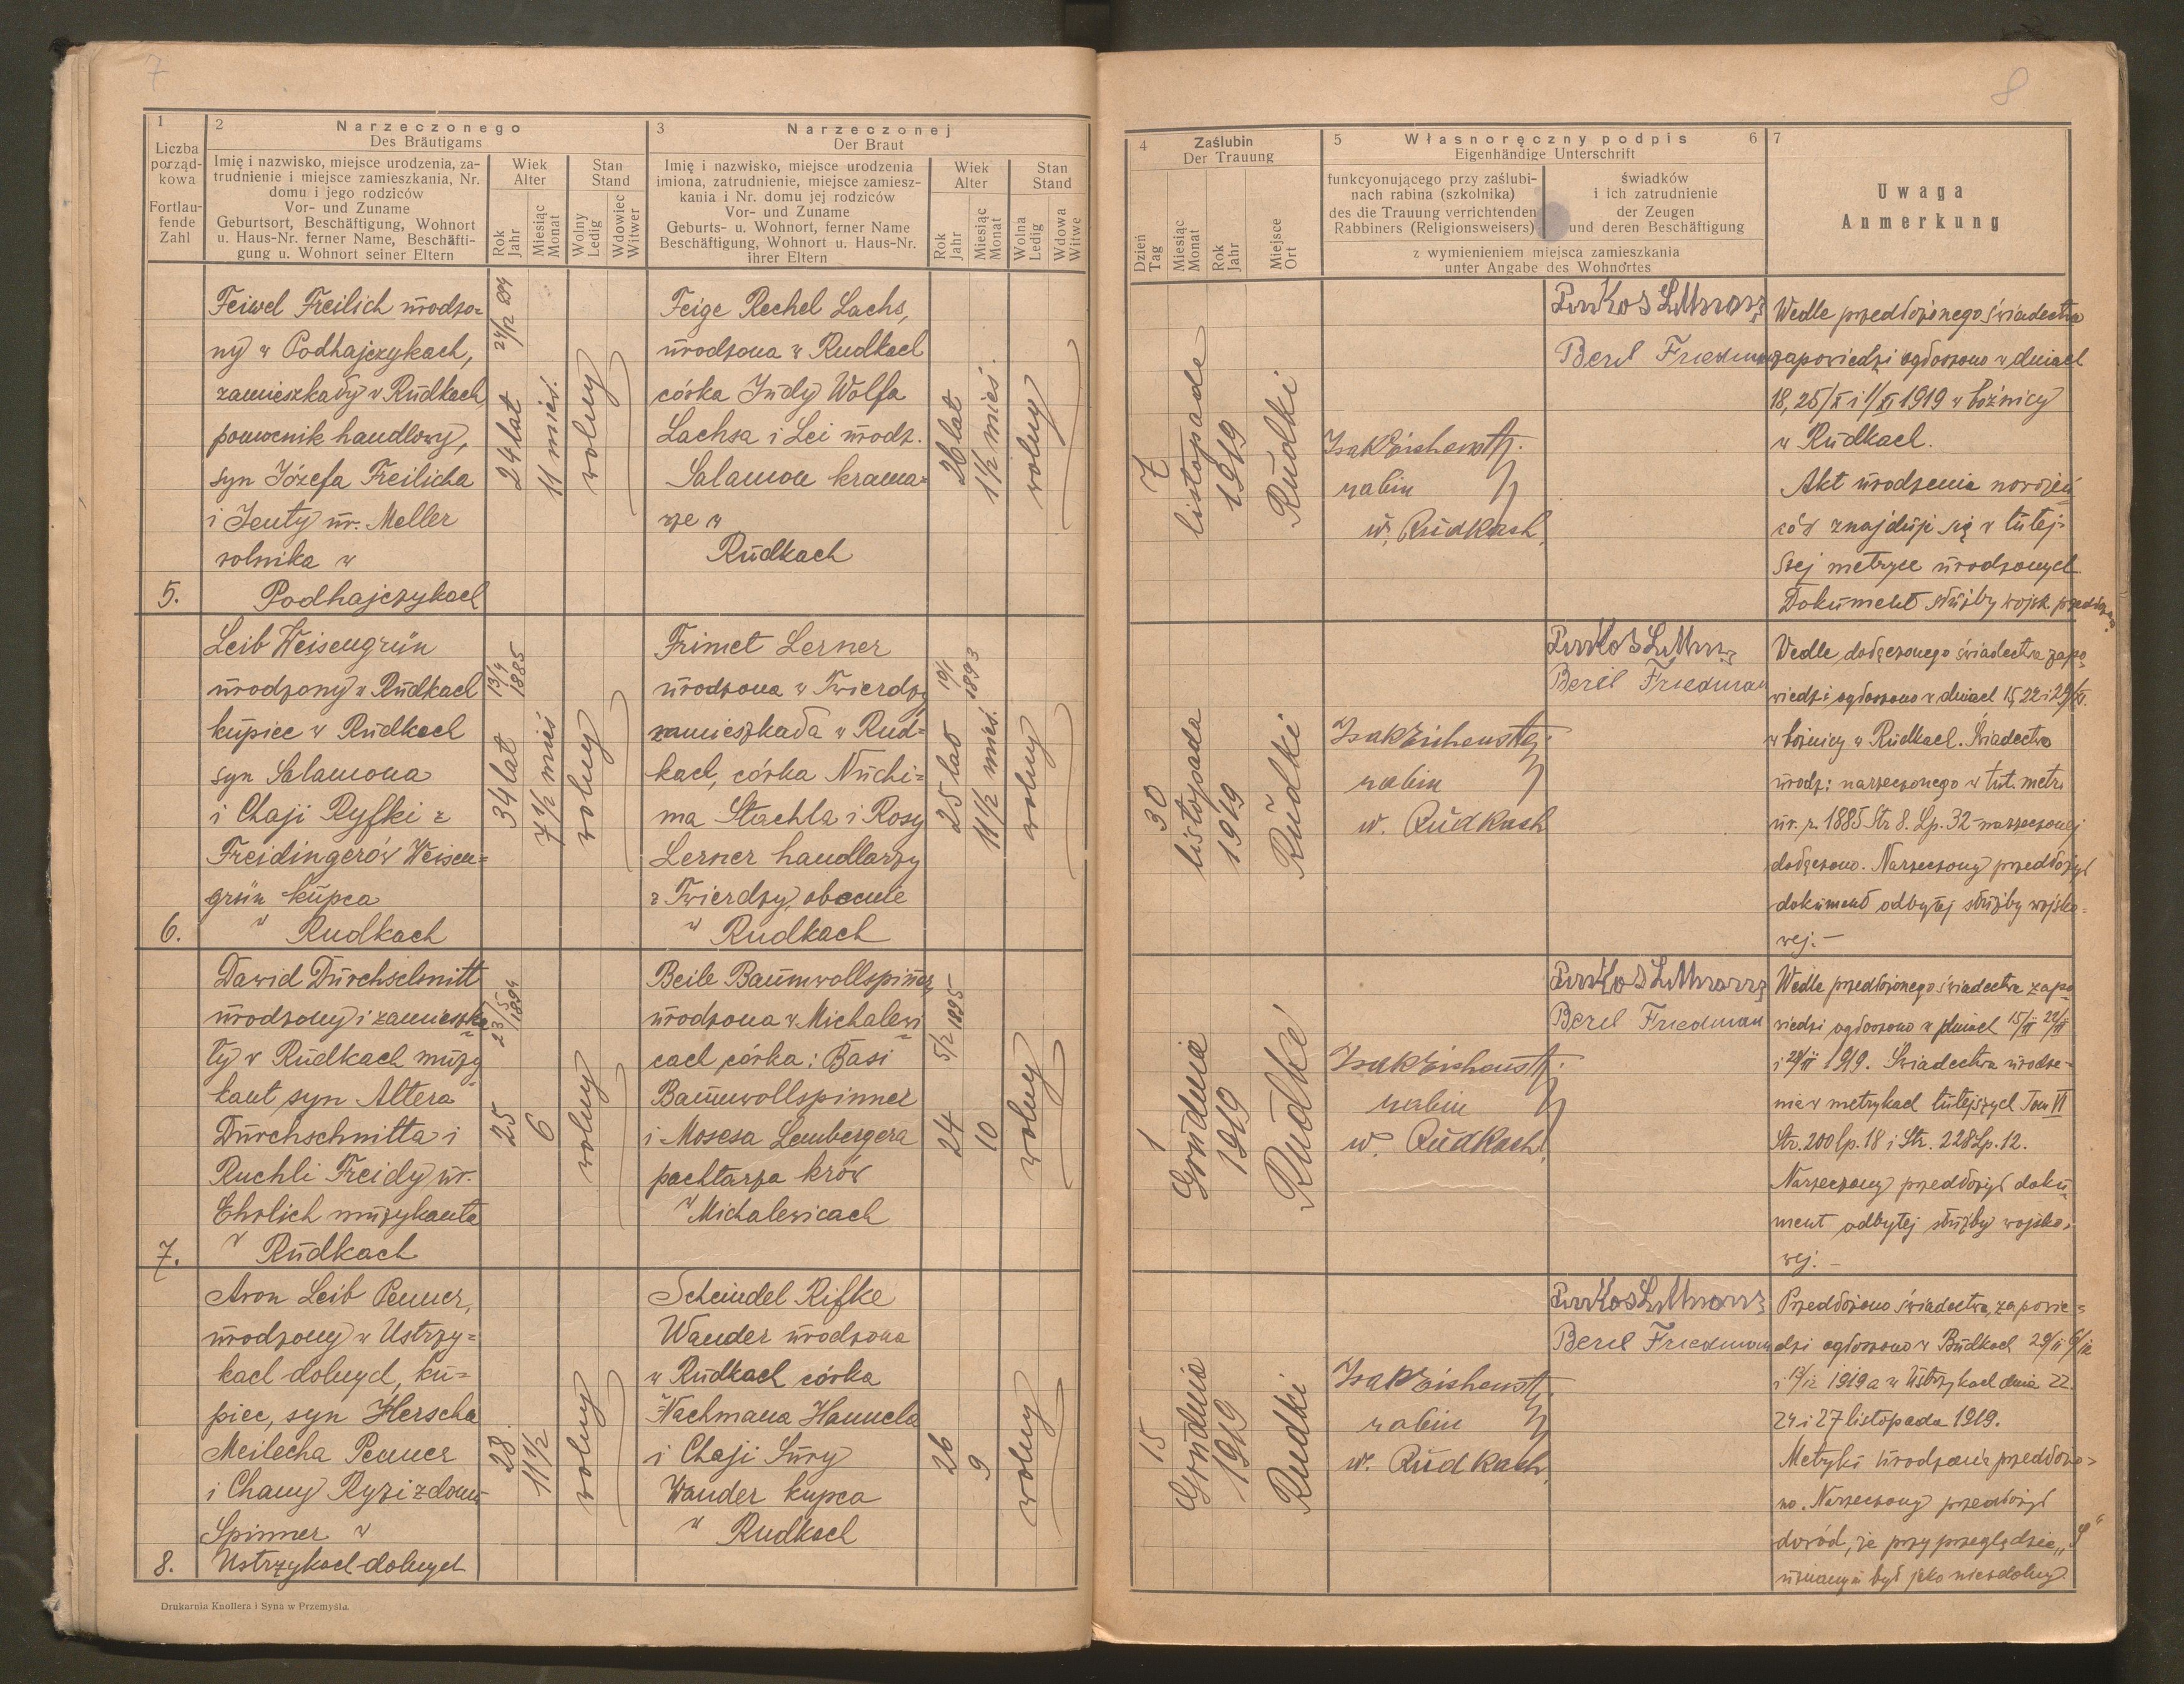 7
1
Liczba
porząd-
kowa
Fortlau-
fende
Zahl
2
Narzeczonego
Des Bräutigams
Imię i nazwisko, miejsce urodzenia, za-
trudnienie i miejsce zamieszkania, Nr.
domu i jego rodziców
Vor- und Zuname
Geburtsort, Beschäftigung, Wohnort
u. Haus-Nr. ferner Name, Beschäfti-
gung u. Wohnort seiner Eltern
Wiek
Alter
Rok
Jahr
Miesiąc
Monat
Stan
Stand
Wolny
Ledig
Wdowiec
Witwer
3
Narzeczonej
Der Braut
Imię i nazwisko, miejsce urodzenia
imiona, zatrudnienie, miejsce zamiesz-
kania i Nr. domu jej rodziców
Vor- und Zuname
Geburts- u. Wohnort, ferner Name
Beschäftigung, Wohnort u. Haus-Nr.
ihrer Eltern
Wiek
Alter
Rok
Jahr
Miesiąc
Monat
Stan
Stand
Wolna
Ledig
Wdowa
Witwe
Feiwel Freilich urodzo-
ny w Podhajczykach,
zamieszkały w Rudkach
pomocnik handlowy,
syn Józefa Freilicha
i Jenty ur. Meller
rolnika w
5. Podhajczykach
24 lat
11 mies.
wolny
Feige Rechel Lachs,
urodzona w Rudkach
córka Judy Wolfa
Lachsa i Lei urodz.
Salamon krama-
rze w
Rudkach
26 lat
1 1/2 mies.
wolny
Leib Weisengrün
urodzony w Rudkach
kupiec w Rudkach
syn Salamona
i Chaji Ryfki z
Freidingerów Weisen-
grün kupca
6. w Rudkach
13/4
1885
34 lat
7 1/2 mies
wolny
Frimet Lerner
urodzona w Twierdzy
zamieszkała w Rud-
kach, córka Nuchi-
ma Stachla i Rosy
Lerner handlarzy
z Twierdzy, obecnie
w Rudkach
1893
25 lat
11 1/2 mies.
wolny
Dawid Durchschnitt
urodzony i zamieszka-
ły w Rudkach muzy
kant syn Altera
Durchschnitta i
Ruchli Freidy ur.
Ehrlich muzykanta
7. w Rudkach
23/5
1894
25
6
wolny
Beile Baumwollspinner
urodzona w Michalewi
cach córka: Basi
Baumwollspinner
i Mosesa Lembergera
pachtarza krów
w Michalewicach
5/2 1895
24
10
wolny
Aron Leib Penner,
urodzony w Ustrzy-
kach dolnych, ku-
piec, syn Herscha
Meilecha Penner
i Chany Ryzi z domu
Spinner w
8. Ustrzykach dolnych
28
11 1/2
wolny
Scheindel Rifke
Wander urodzona
w Rudkach córka
Nachmana Hanucla
i Chaji Sury
Wander kupca
w Rudkach
26
9
wolny
Drukarnia Knollera i Syna w Przemyślu.
8
4
Zaślubin
Der Trauung
Dzień
Tag
Miesiąc
Monat
Rok
Jahr
Miejsce
Ort
5
Własnoręczny podpis
6
Eigenhändige Unterschrift
funkcyonującego przy zaślubi-
nach rabina (szkolnika)
des die Trauung verrichtenden
Rabbiners (Religionsweisers)
świadków
i ich zatrudnienie
der Zeugen
und deren Beschäftigung
z wymienieniem miejsca zamieszkania
unter Angabe des Wohnortes
7
Uwaga
Anmerkung
7
listopada
1919
Rudki
rabin
w. Rudkach
Berl Friedman
Wedle przedłożonego świadectwa
zapowiedzi ogłoszono w dniach
18, 25/X i 1/XI 1919 w bóżnicy
w Rudkach.
Akt urodzenia narzeczeń
ców znajduje się w tutej-
szej metryce urodzonych
Dokument służby wojsk. przedłożono.
30
listopada
1919
Rudki
rabin
w. Rudkach
Berl Friedman
Wedle dołączonego świadectwa zapo-
wiedzi ogłoszono w dniach 15, 22 i 29/XI.
w bóżnicy w Rudkach. Świadectwo
urodz: narzeczonego w tut. metr.
ur. z. 1885 Str 8. Lp. 32 - narzeczonej
dołączono. Narzeczony przedłożył
dokument odbytej służby wojsko-
wej. -
1
Grudnia
1919
Rudki
rabin
w. Rudkach
Berl Friedman
Wedle przedłożonego świadectwa zapo-
wiedzi ogłoszono w dniach 15/11 22/11
i 29/11 1919. Świadectwa urodze-
nia w metrykach tutejszych Tom VI
Str. 200 lp. 18 i Str. 228 Lp. 12.
Narzeczony przedłożył doku-
ment odbytej służby wojsko-
wej. -
15
Grudnia
1919
Rudki
rabin
w. Rudkach
Berl Friedman
Przedłożono świadectwa, zapowie-
dzi ogłoszono w Rudkach 29/11 6/12
i 13/12 1919 a w Ustrzykach dnia 22.
24 i 27 listopada 1919.
Metryki urodzenia przedłożo-
no. Narzeczony przedłożył
dowód, że przy przeglądzie „S"
uznanym był jako niezdolny